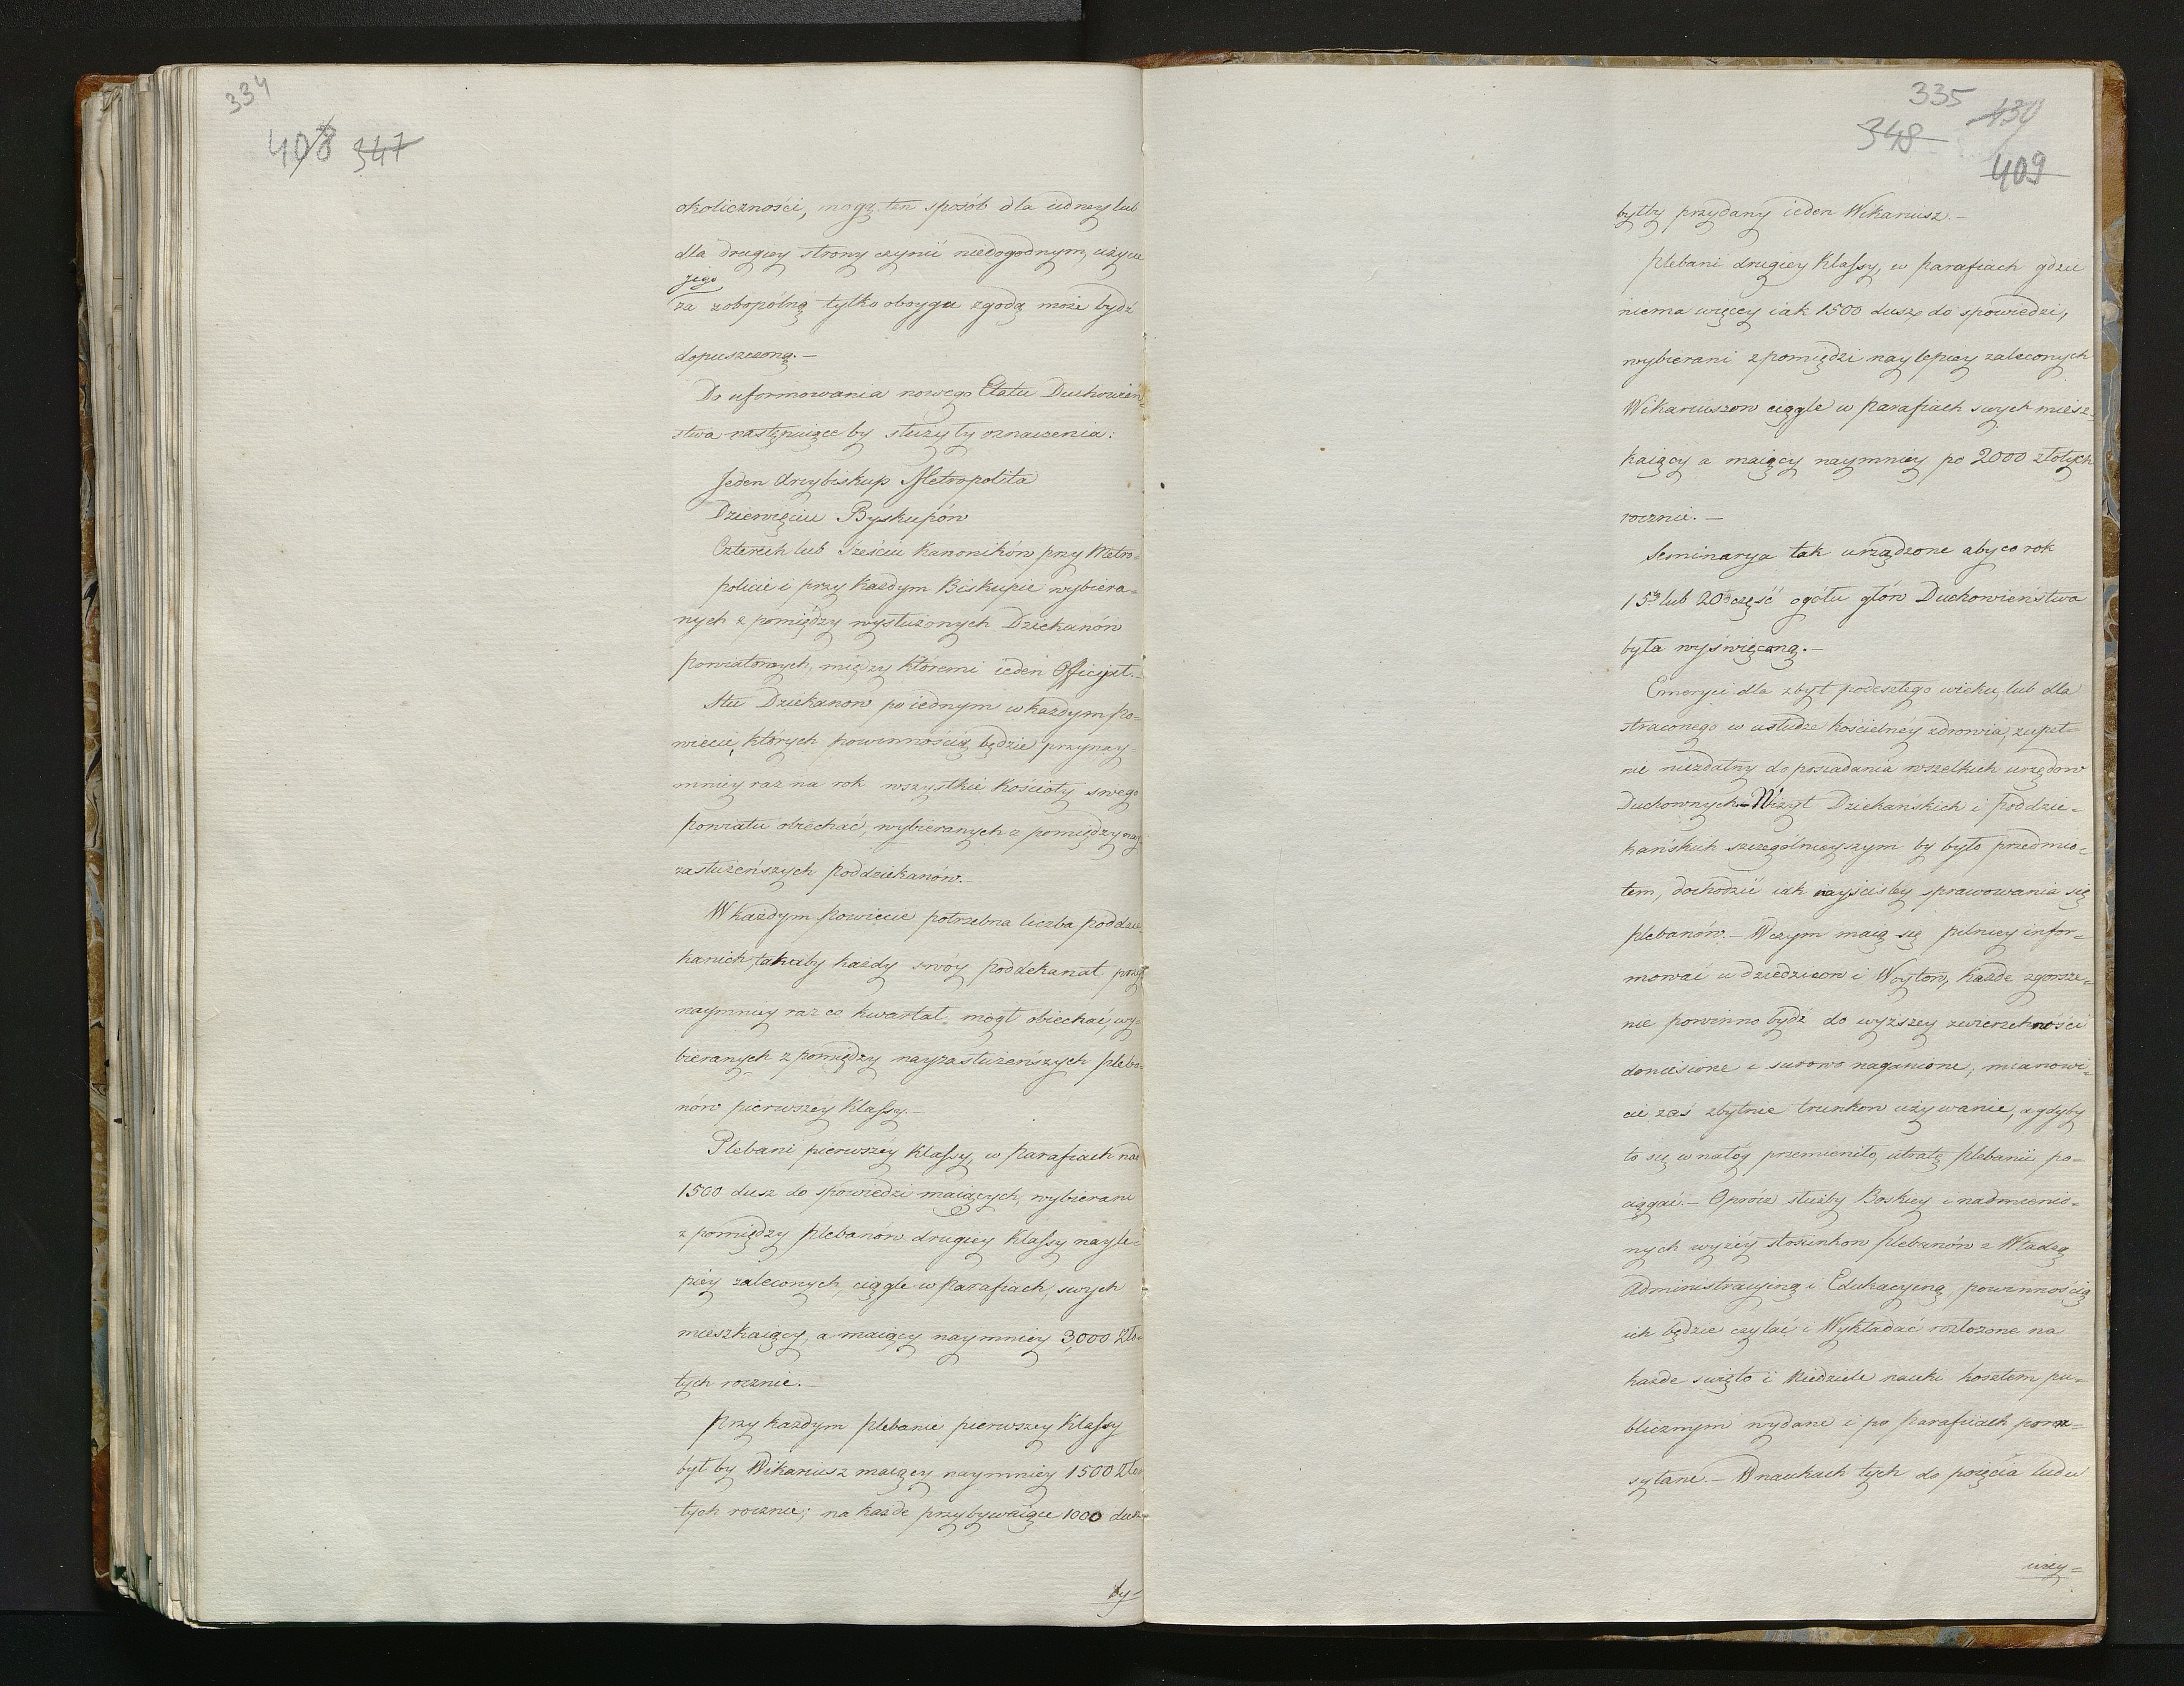 334
408 347
okoliczności, mogą ten sposób dla iedney lub
dla drugiey strony czynić niedogodnym, użycie
jego
za zobopólną tylko oboyga zgodą może bydź
dopuszczoną.—
Do uformowania nowego Etatu Duchowień=
stwa następuiące by służyły oznaczenia:
Jeden Arcybiskup Metropolita
Dziewięciu Byskupów
Czterech lub Sześciu Kanoników przy Metro=
policie i przy każdym Biskupie wybiera=
nych z pomiędzy wysłużonych Dziekanów
powiatowych, między któremi ieden Officyał.—
Stu Dziekanow po iednym w każdym Po=
wiecie, których powinnością będzie przynay=
mniey raz na rok wszystkie Kościoły swego
powiatu obiechać, wybieranych z pomiędzy nay
zasłużeńszych Poddziekanow.—
W każdym Powiecie potrzebna liczba poddzie=
kanich, tak aby każdy swóy poddekanat przy
naymniey raz co kwartał mógł obiechać, wy=
bieranych z pomiędzy nayzasłużeńszych pleba=
nów pierwszéy Klassy.—
Plebani pierwszéy Klassy, w Parafiach nad
1500 dusz do spowiedzi maiących, wybierani
z pomiędzy plebanów drugiey Klassy nayle=
piey zaleconych, ciągle w Parafiach, swych
mieszkaiący, a maiący naymniey 3,000 Zło=
tych rocznie.—
Przy każdym plebanie pierwszey Klassy
byłby Wikariusz maiący naymniey 1500 Zło
tych rocznie; na każde przybywaiące 1000 dusz
by
335 430
348
409
byłby przydany ieden Wikariusz.—
Plebani drugiey Klassy, w Parafiach gdzie
niema więcey iak 1500 dusz, do spowiedzi,
wybierani z pomiędzi naylepiey zaleconych
Wikariuszow ciągle w Parafiach swych miesz=
kaiący a maiący naymniey po 2000 złotych
rocznie.—
Seminarya tak urządzone aby co rok
15ta lub 20ta część ogółu głów Duchowieństwa
była wyświęcaną.—
Emeryci dla zbyt podeszłego wieku, lub dla
straconego w usłudze kościelnéy zdrowia, zupeł=
nie niezdatny do posiadania wszelkich urzędow
Duchownych—Wizyt Dziekańskich i Poddzie=
kańskich szczególnieyszym by było przedmio=
tem, dochodzić iak nayściśley sprawowania się
plebanów.— W czym maią się pilniey infor=
mować u dziedzicow i Woytow, każde zgorsze=
nie powinno bydź do wyższey zwierzchności
doniesione i surowo naganione, mianowi=
cie zaś zbytnie trunkow używanie, a gdyby
to się w nałóg przemieniło, utratę plebanii po=
ciągać.— Oprócz służby Boskiey i nadmienio=
nych wyżéy stosunkow plebanów z Władzą
Administracyiną i Edukacyjną, powinnością
ich będzie czytać i Wykładać rozłożone na
każde święto i Niedziele nauki kosztem pu=
blicznym wydane i po Parafiach poroz=
syłane.— W naukach tych do poięcia ludu
uży=